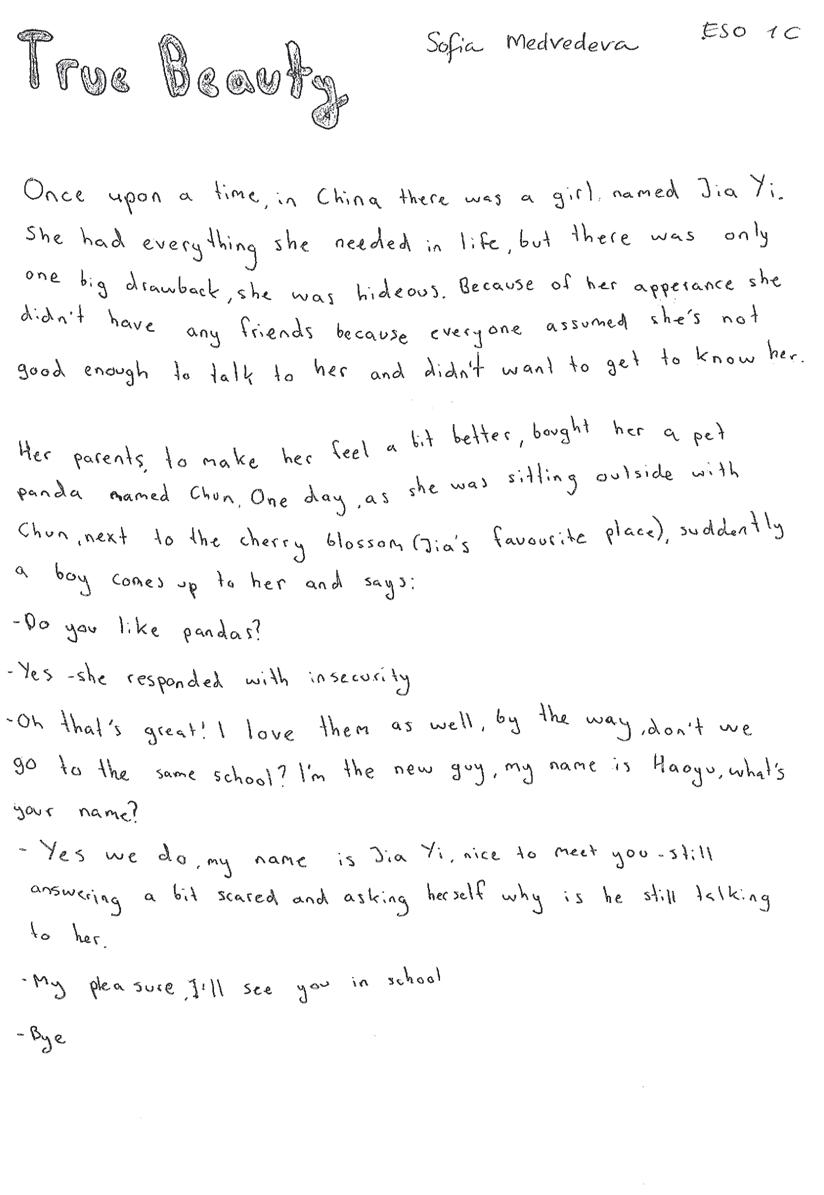 True Beauty
Sofia Medvedeva
ESO 1C
Once upon a time, in China there was a girl, named Jia Yi.
She had everything she needed in life, but there was only
one big drawback, she was hideous. Because of her apperance she
didn't have any friends because everyone assumed she's not
good enough to talk to her and didn't want to get to know her.
Her parents, to make her feel a bit better, bought her a pet
panda named Chun. One day, as she was sitting outside with
Chun, next to the cherry blossom (Jia's favourite place), suddently
a boy comes up to her and says:
-Do you like pandas?
-Yes -she responded with insecurity
-Oh that's great! I love them as well, by the way, don't we
go to the same school? I'm the new guy, my name is Haoyu, what's
your name?
- Yes we do, my name is Jia Yi, nice to meet you - still
answering a bit scared and asking herself why is he still talking
to her.
-My pleasure, I'll see you in school
-Bye